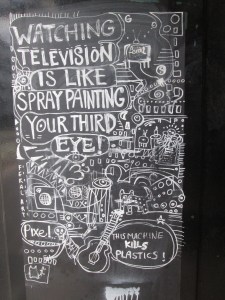 WATCHING
TELEVISION
IS LIKE
SPRAY PAINTING
YOUR THIRD
EYE!
VOX
Pixel
THIS MACHINE
KILLS
PLASTICS!